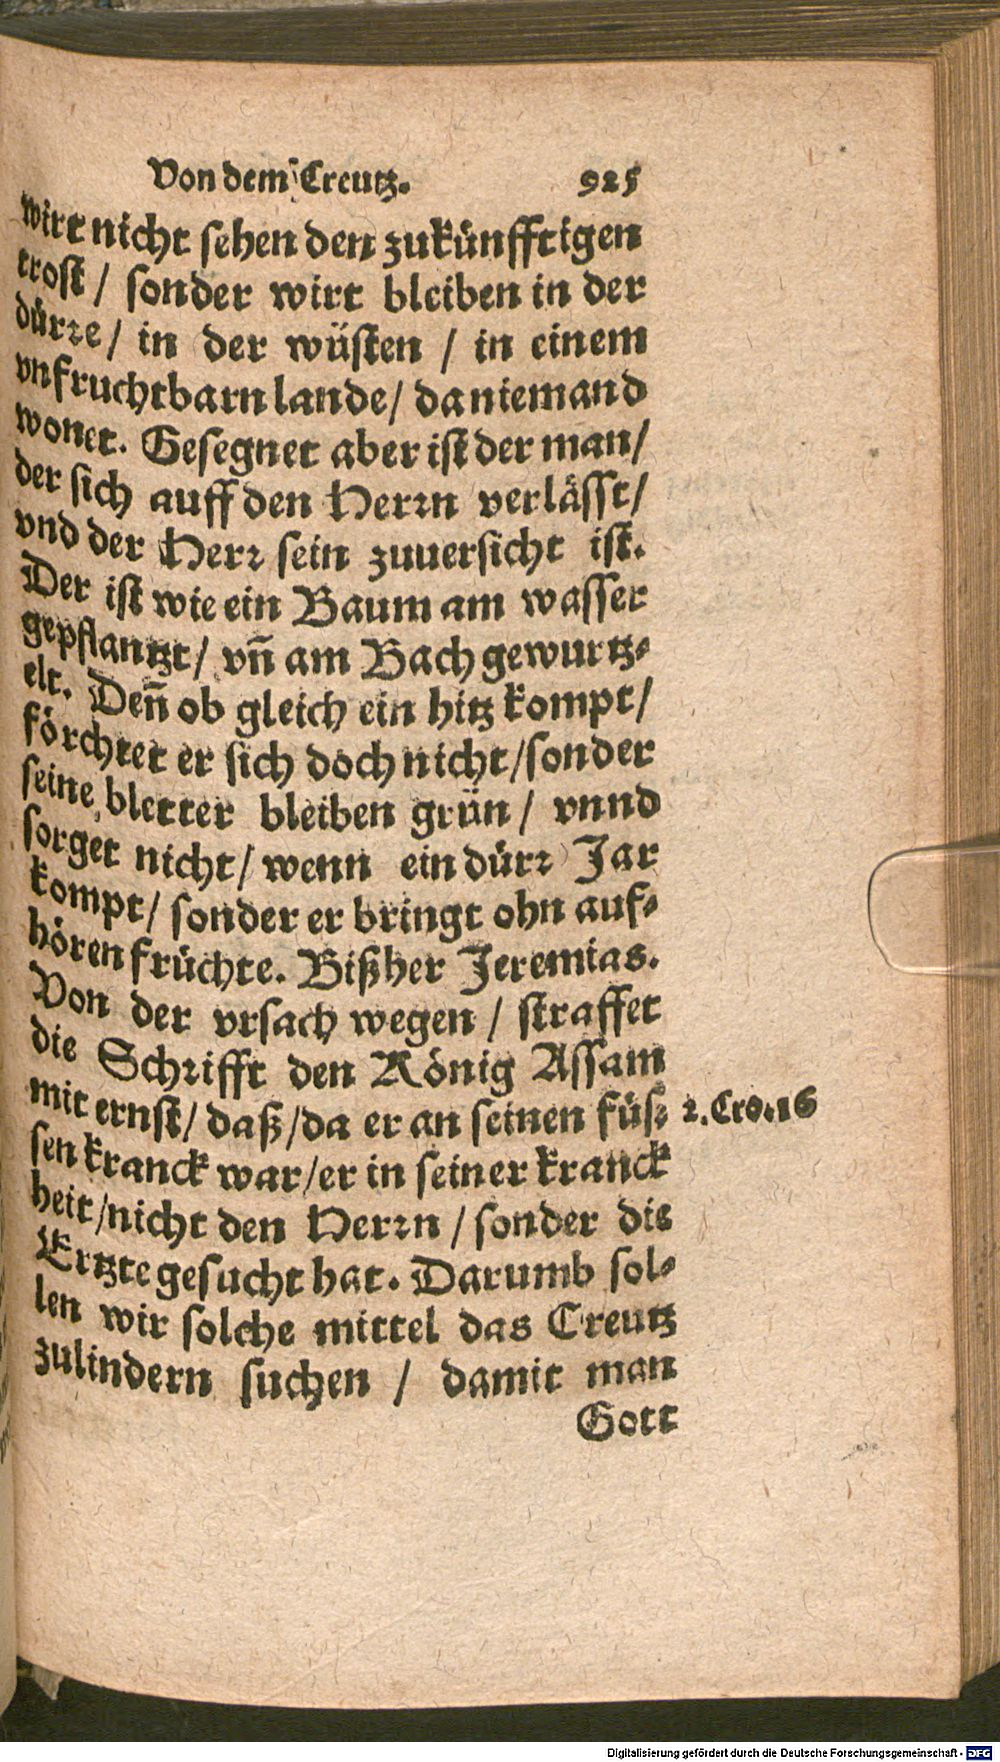 Von dem Creutz. 925
wirt nicht sehen den zukünfftigen
trost / sonder wirt bleiben in der
dürre / in der wüsten / in einem
vnfruchtbarn lande / da niemand
wonet. Gesegnet aber ist der man /
der sich auff den Herrn verlässt /
vnd der Herr sein zuuersicht ist.
Der ist wie ein Baum am wasser
gepflantzt / vn̄ am Bach gewurtz⸗
elt. Den̄ ob gleich ein hitz kompt /
förchtet er sich doch nicht / sonder
seine bletter bleiben grün / vnnd
sorget nicht / wenn ein dürr Jar
kompt / sonder er bringt ohn auf⸗
hören früchte. Bißher Jeremias.
Von der vrsach wegen / straffet
die Schrifft den König Assam
mit ernst / daß / da er an seinen füs⸗ 2. Cro. 16
sen kranck war / er in seiner kranck
heit / nicht den Herrn / sonder die
Ertzte gesucht hat. Darumb sol⸗
len wir solche mittel das Creutz
zulindern suchen / damit man
Gott
Digitalisierung gefördert durch die Deutsche Forschungsgemeinschaft - DFG